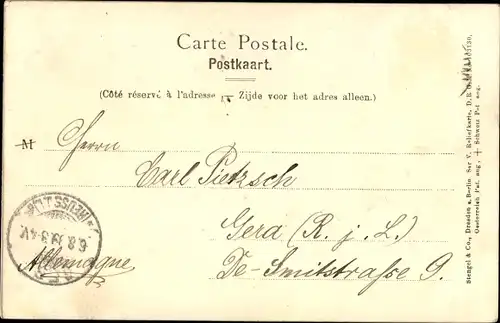 Carte Postale.
Postkaart.
(Côté réservé à l'adresse — Zijde voor het adres alleen.)
M Herrn
Carl Pietzsch
Gera (R. j. L.)
De-Smitstrasse 9.
Allemagne
(REUSS
6.8. 3-4V.
Stengel & Co., Dresden u. Berlin Ser V. Reliefkarte, D.R.G.M.
Oesterreich Pat. ang., + Schweiz Pat ang.